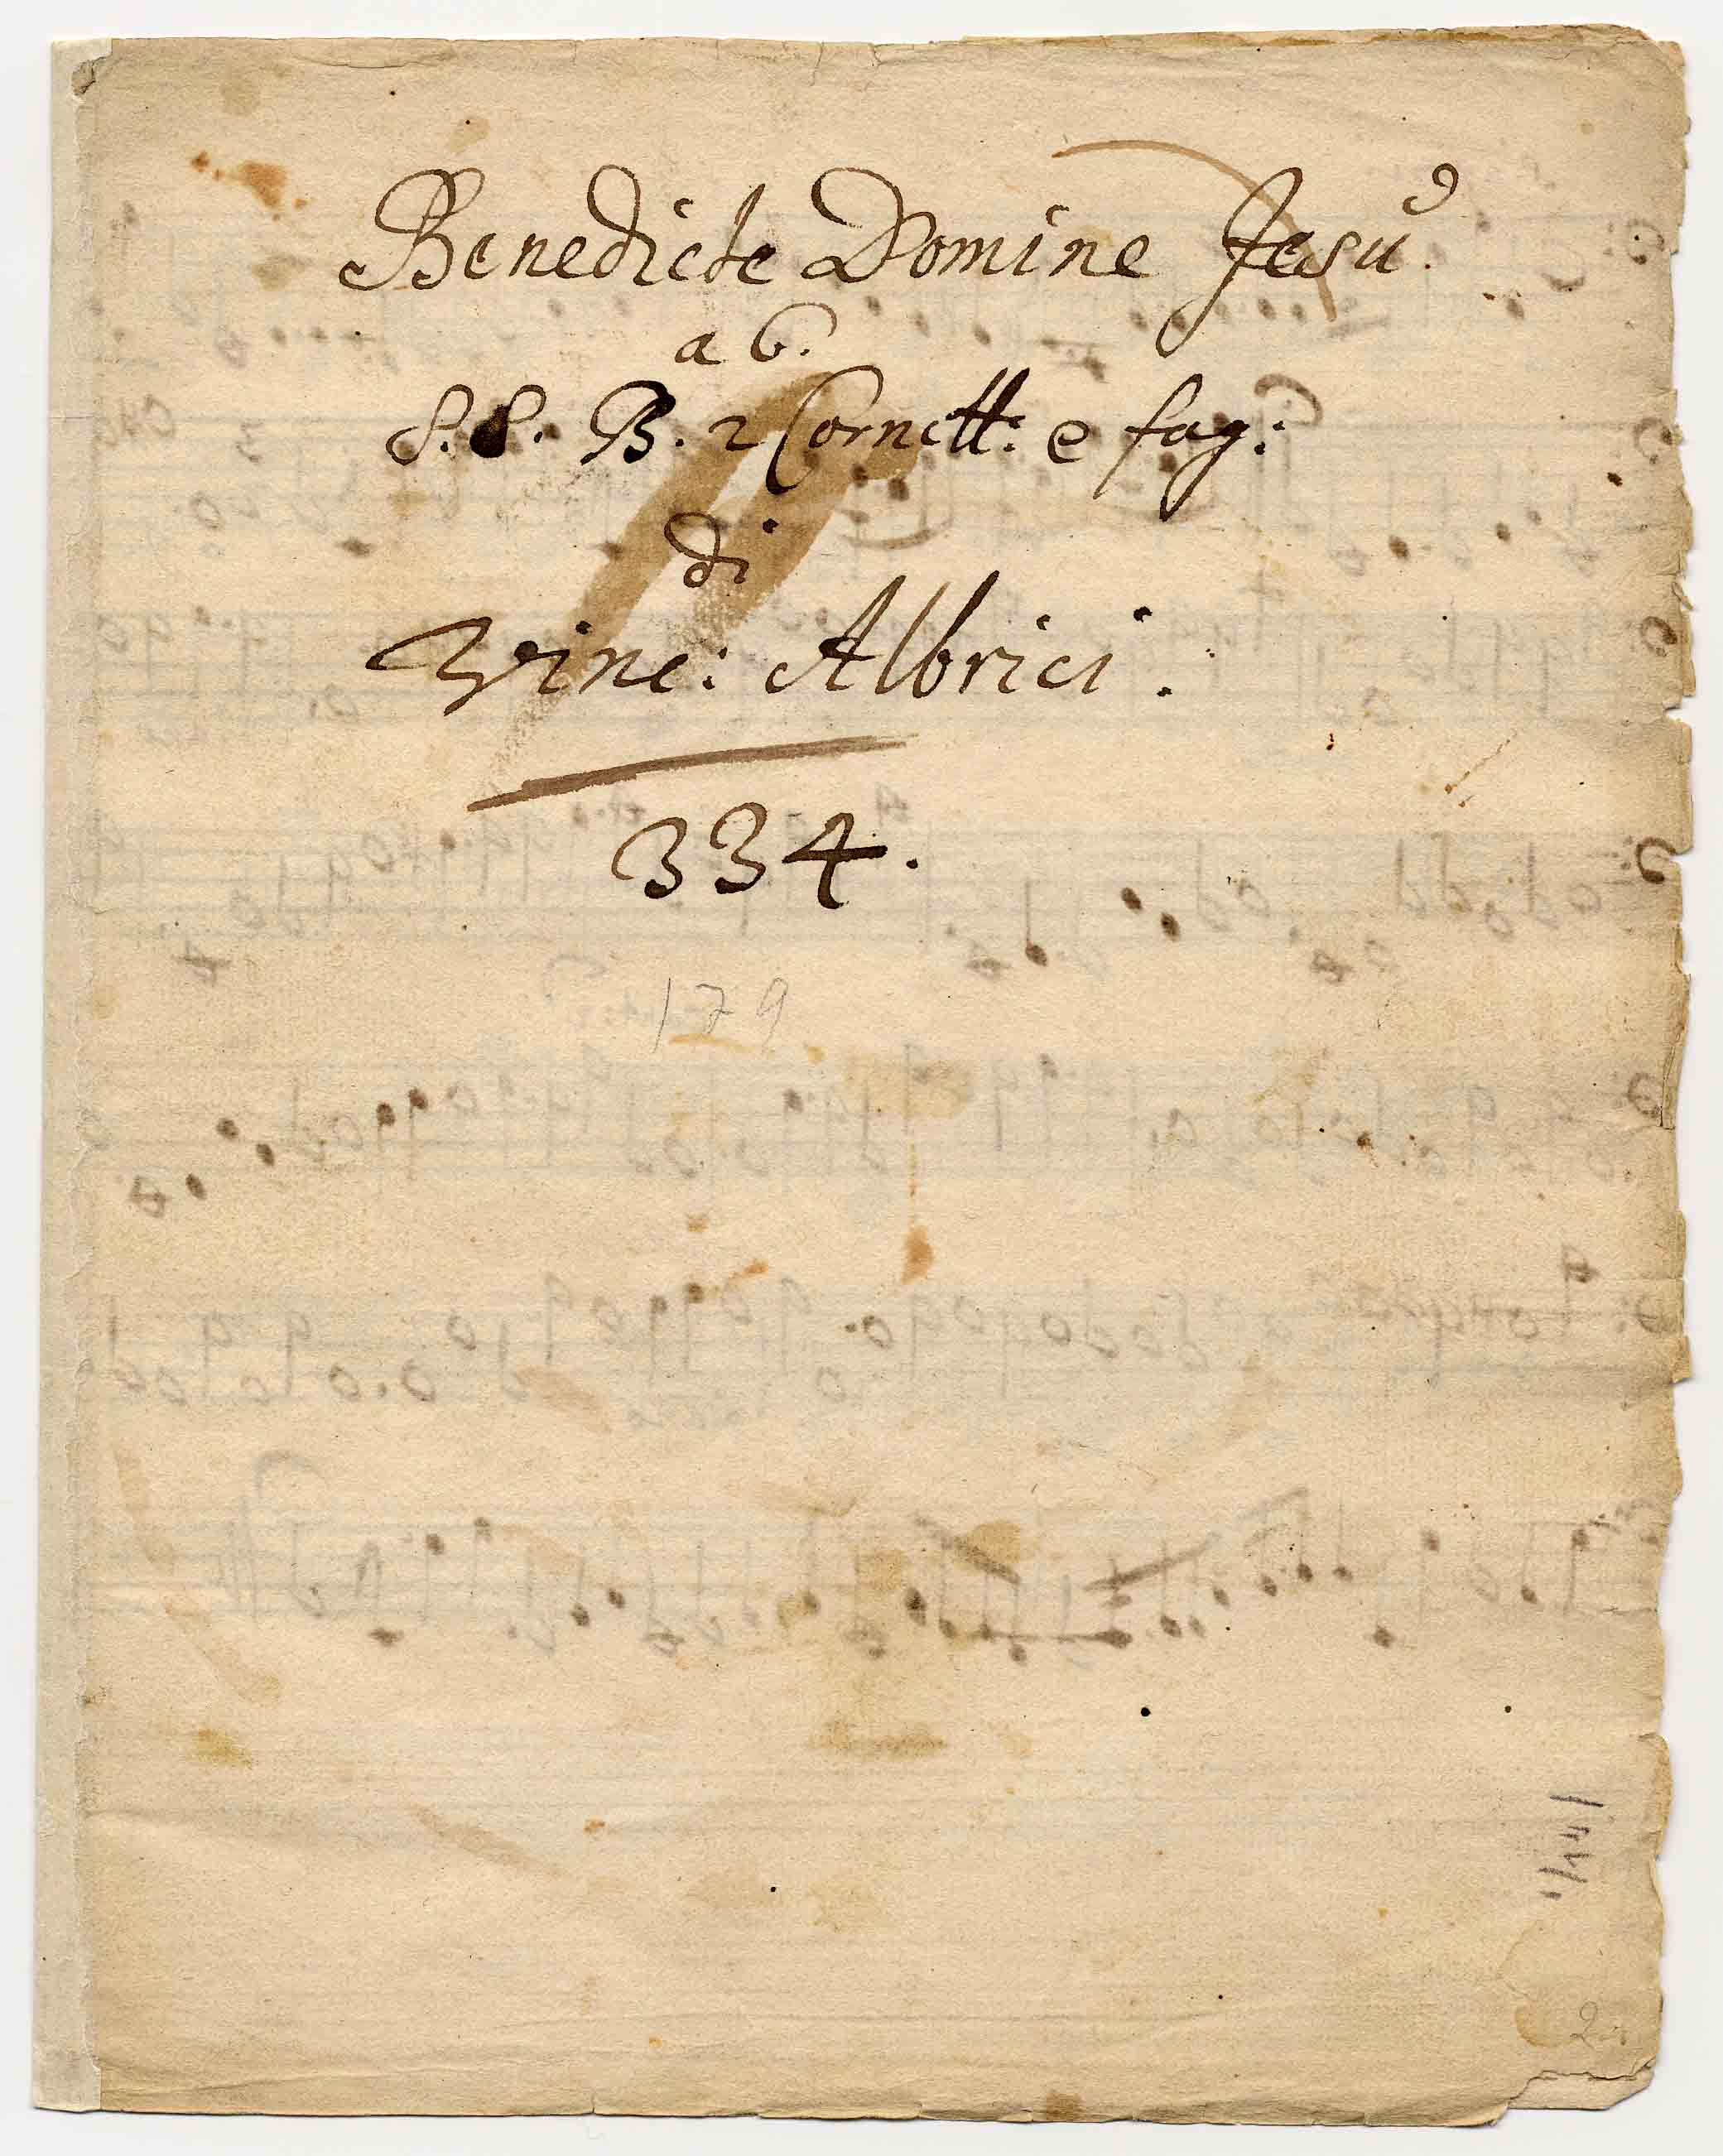 Benedicte Domine Jesu.
a 6.
S. S. B. 2 Cornett: e fag:
di
Vinc: Albrici.
334.
179
2